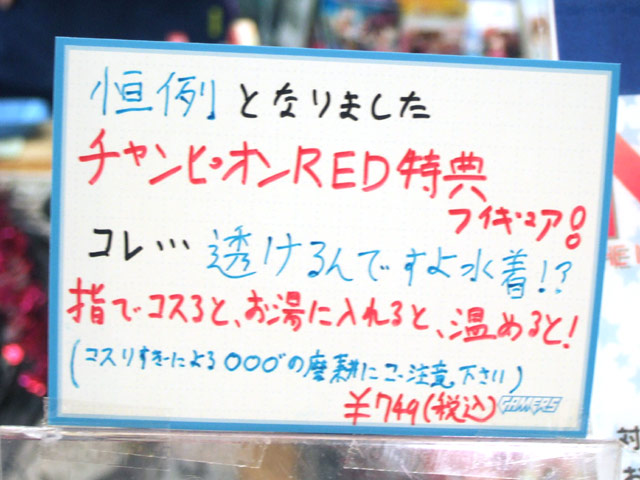 恒例となりました
チャンピオンRED特典
フィギュア!
コレ…透けるんですよ水着!?
指でコスると、お湯に入れると、温めると!
(コスりすぎによる○○○の磨耗にご注意下さい)
¥749(税込) GAMERS